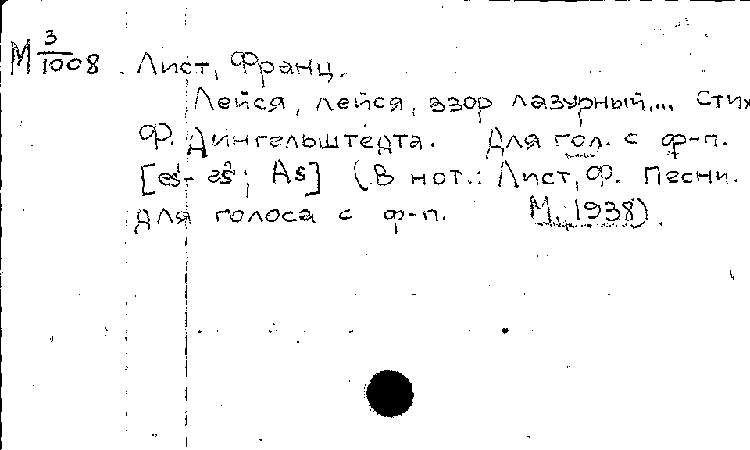 М 3/1008. Лист, Франц.
Лейся, лейся, взор лазурный... Стих
Ф. Дингельштедта. Для гол. с ф-п.
[es¹- as²; As] (В нот.: Лист, Ф. Песни.
для голоса с ф-п. М., 1938).